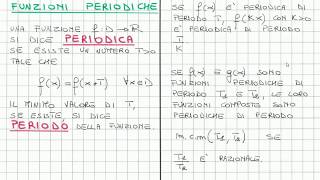 FUNZIONI PERIODICHE
UNA FUNZIONE f: D→R
SI DICE PERIODICA
SE ESISTE UN NUMERO T>0
TALE CHE
f(x) = f(x+T) ∀x∈D
IL MINIMO VALORE DI T,
SE ESISTE, SI DICE
PERIODO DELLA FUNZIONE.
SE f(x) E' PERIODICA DI
PERIODO T, f(Kx) CON K>0
E' PERIODICA DI PERIODO
T
K
SE f(x) E g(x) SONO
FUNZIONI PERIODICHE DI
PERIODO T₁ E T₂, LE LORO
FUNZIONI COMPOSTE SONO
PERIODICHE DI PERIODO
m.c.m (T₁, T₂) SE
T₁
T₂ E' RAZIONALE.